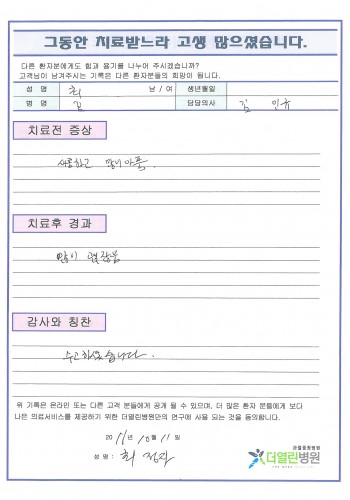 그동안 치료받느라 고생 많으셨습니다.
다른 환자분에게도 힘과 용기를 나누어 주시겠습니까?
고객님이 남겨주시는 기록은 다른 환자분들의 희망이 됩니다.
성 명 최 남 / 여 생년월일
병 명 담당의사 김 민규
치료전 증상
허리아픔.
치료후 경과
많이 괜찮음
감사와 칭찬
수고하셨습니다.
위 기록은 온라인 또는 다른 고객 분들에게 공개 될 수 있으며, 더 많은 환자 분들에게 보다
나은 의료서비스를 제공하기 위한 더열린병원만의 연구에 사용 되는 것을 동의합니다.
20 11 년 10 월 11 일
성 명 : 최
관절중점병원
더열린병원